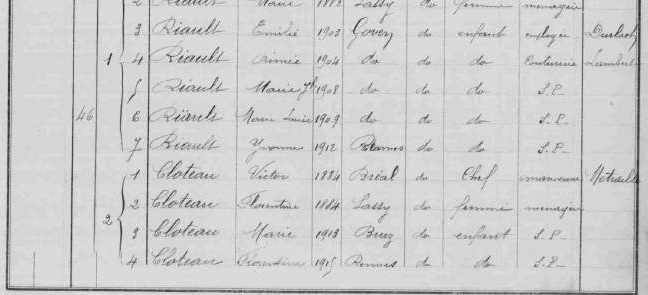 2 Riault Marie 1882 Lassy do femme ménagère
3 Riault Emilie 1903 Goven do enfant employée
1 4 Riault Aimée 1904 do do do Couturière Lambert
5 Riault Marie Jh 1908 do do do S.P.
46 6 Riault Marie Louise 1909 do do do S.P.
7 Riault Yvonne 1912 Rennes do do S.P.
1 Cloteau Victor 1884 Bréal do Chef manœuvre
2 2 Cloteau Florentine 1884 Lassy do femme ménagère
3 Cloteau Marie 1913 Bruz do enfant S.P.
4 Cloteau 1915 Rennes do do S.P.